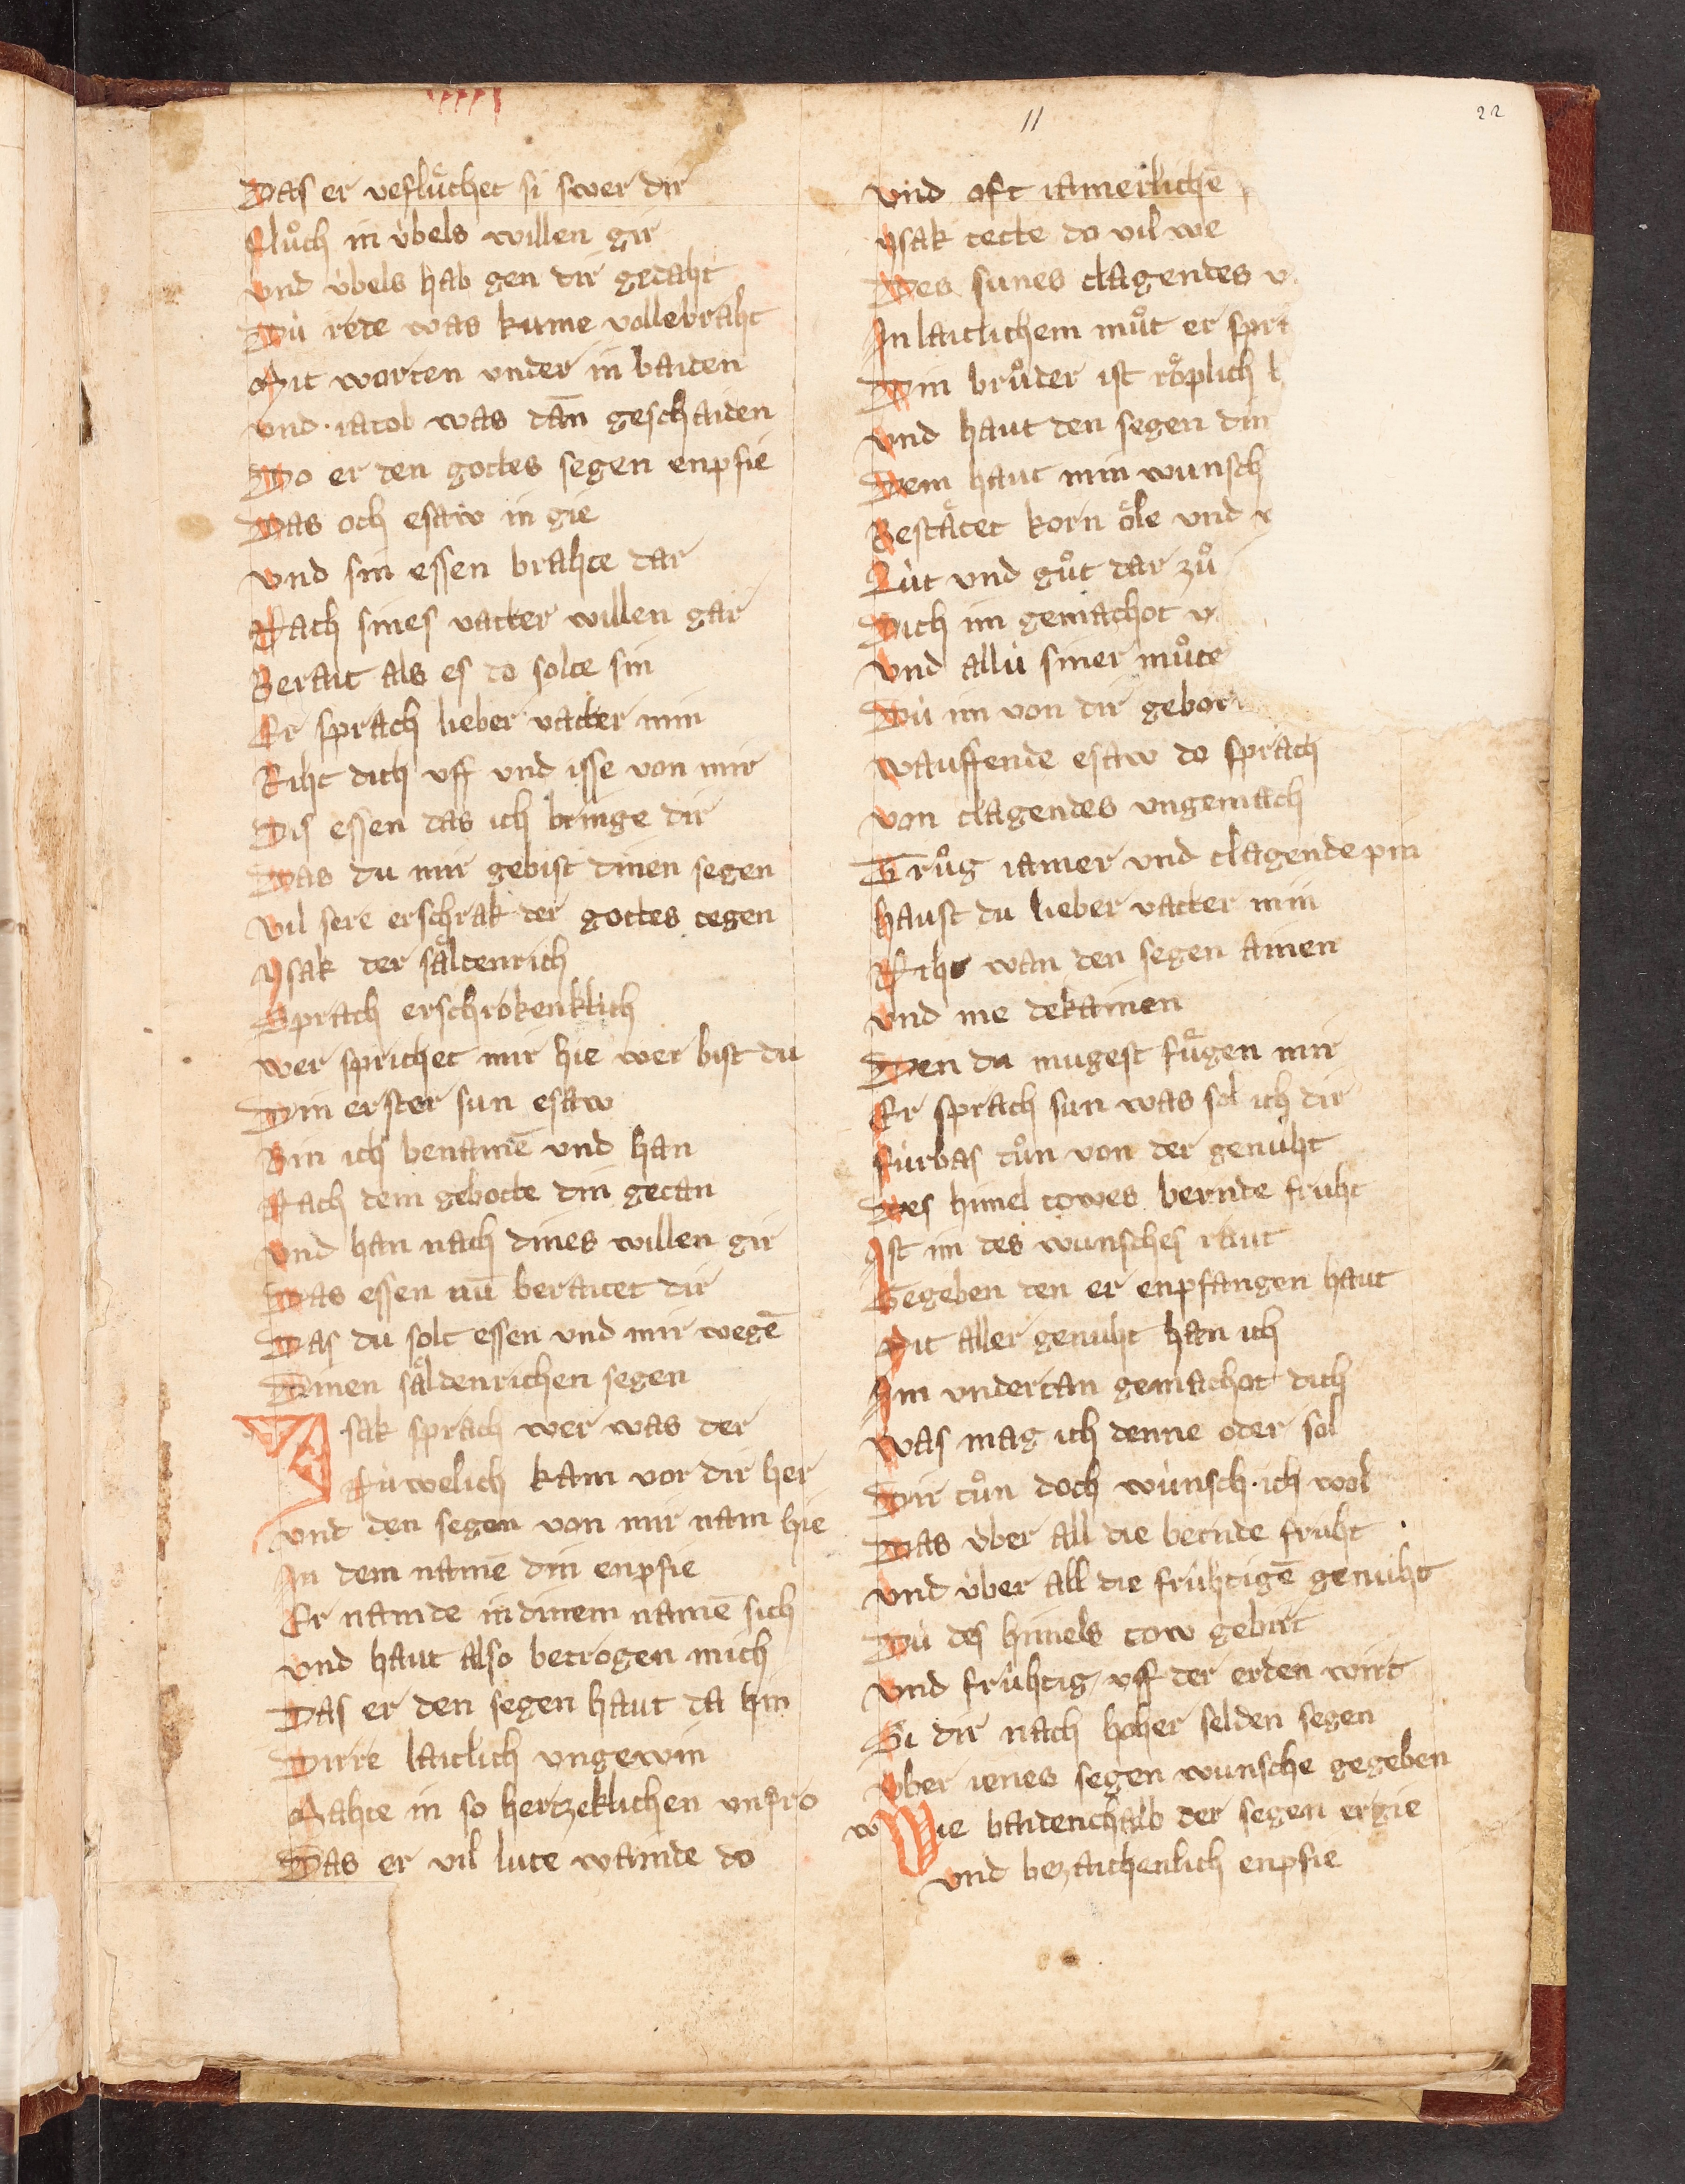 11
22
Das er vefluͤchet si swer dir
Fluͦch in v̇bels willen gir
vnd v̇bels hab gen dir gedaht
Dv̇ rede was kume vollebraht
Mit worten vnder in baiden
vnd · iacob was dañ geschaiden
Do er den gottes segen enpfie
Das och esaw in gie
vnd sin essen brahte dar
Nach sines vatter willen gar
Berait als es do solte sin
Er sprach lieber vatter min
Riht dich vff vnd isse von mir
Dis essen das ich bringe dir
Das du mir gebist dinen segen
vil sere erschrak der gottes tegen
ysak der saͤldenrich
Sprach erschrokenklich
wer sprichet mir hie wer bist du
Din erster sun esaw
Bin ich benamē vnd han
Nach dem gebotte din getan
vnd han nach dines willen gir
Das essen nū beraitet dir
Das du solt essen vnd mir wegē
Dinen saͤldenrichen segen
Ysak sprach wer was der
Nv̇welich kam vor dir her
vnd den segen von mir nam hie
In dem namē din enpfie
Er namde in dinem namē sich
vnd haut also betrogen mich
Das er den segen haut da hin
Dirre laitlich vngewin
Mahte in so hertzeklichen vnfro
Das er vil lute wainde do
vnd oft iamerlichē
ysak tette do vil we
Des sunes clagendes
In laitlichem muͦt er
Din bruͦder ist roͤplich
vnd haut den segen din
Dem haut min wunsch
Bestaͤtet korn oͤle vnd
Lv̇t vnd guͦt dar zuͦ
Dich im gemachot
vnd allv̇ siner muͦte
Dv̇ im von dir
wauffende esaw do sprach
von clagendes vngemach
Truͦg iamer vnd clagende pin
haust du lieber vatter min
Niht wan den segen ainen
vnd nie dekainen
Den du mugest fuͤgen mir
Er sprach sun was sol ich dir
fv̇rbas tuͦn von der genuht
Des himel towes bernde fruht
Ist im des wunsches raut
Gegeben den er enpfangen haut
Mit aller genuht han ich
Im vndertan gemachot dich
was mag ich denne oder sol
Dir tuͦn doch wv̇nsch · ich wol
Das v̇ber all die bernde fruht
vnd v̇ber all die frv̇htigē genuht
Dv̇ des himels tow gebirt
vnd frv̇htig vff der erden wirt
Si dir nach hoher selden segen
v̇ber ienes segen wunsche gegeben
w Wie baidenthalb der segen ergie
vnd bezaichenlich enpfie